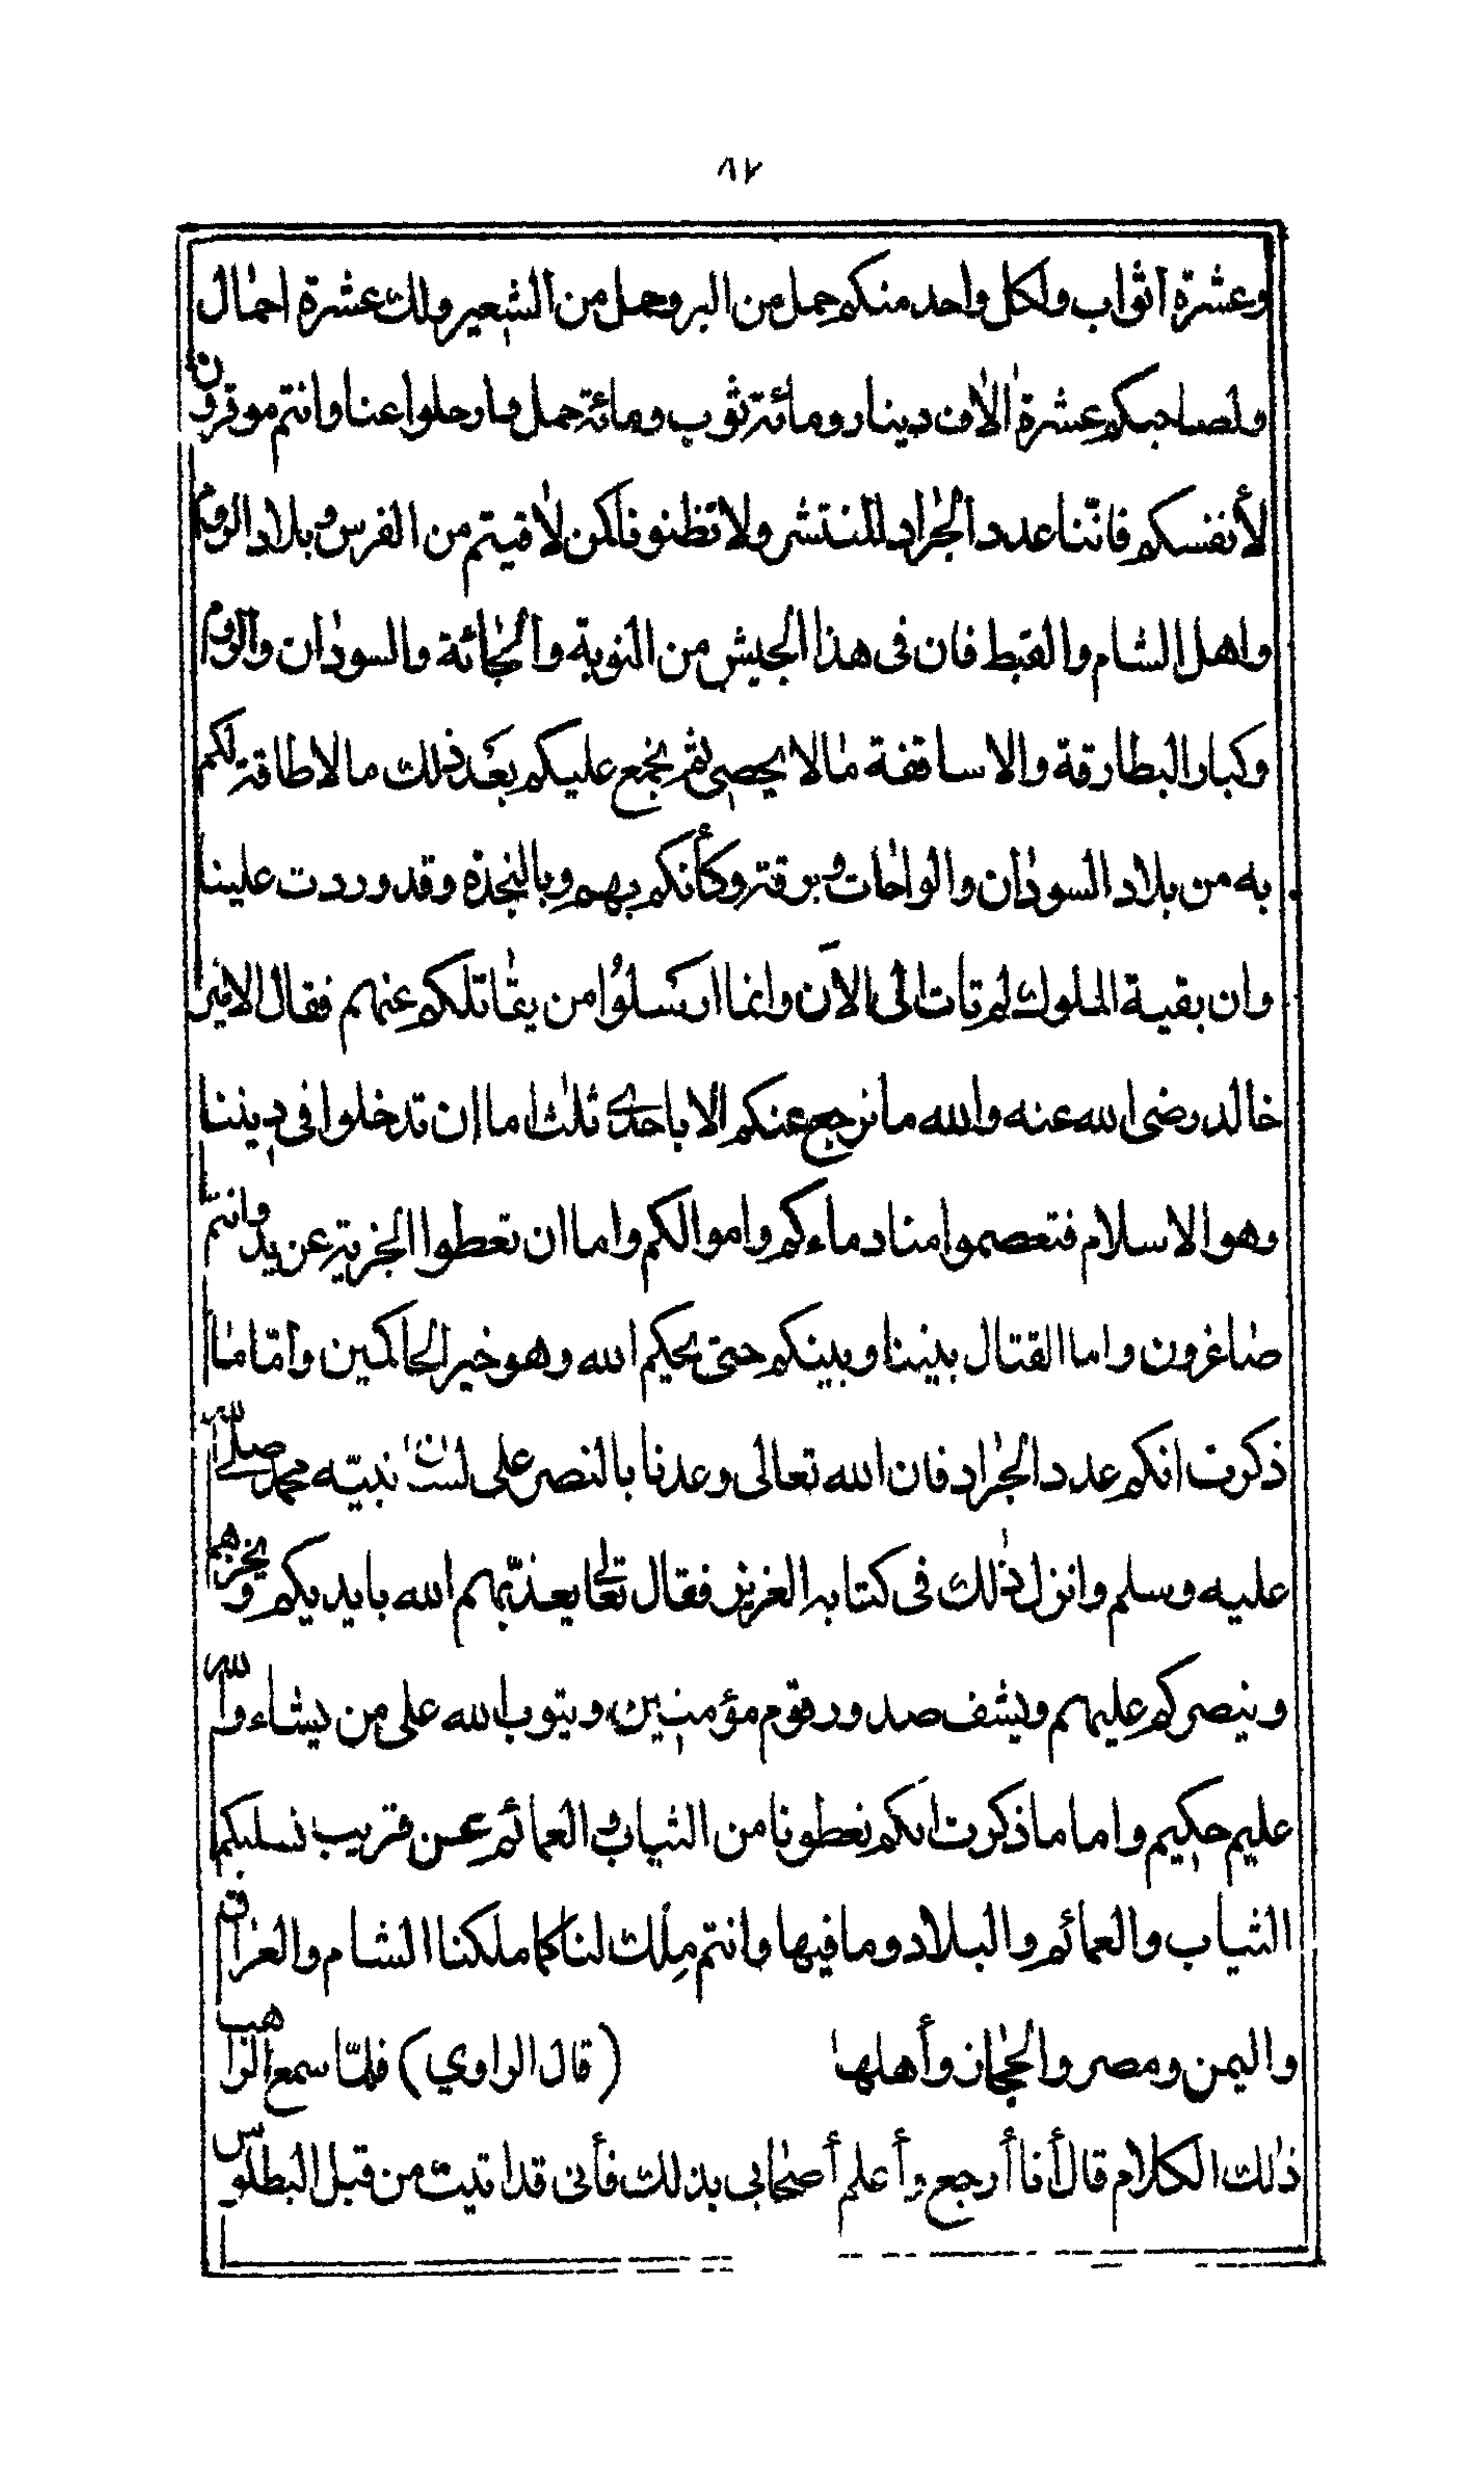 ٨٧
وعشرة اثواب ولكل واحد منكم حمل من البر وحمل من الشعير ولك عشرة احمال
ولصاحبكم عشرة الاف دينار ومائة ثوب ومائة حمل فارحلوا عنا وانتم موقرون
لأنفسكم فانّنا عدد الجراد المنتشر ولا تظنونا كمن لاقيتم من الفرس وبلاد الروم
واهل الشام والقبط فان فى هذا الجيش من النوبة والبجائة والسودان والروم
وكبار البطارقة والاساقفة مالا يحصى ثم نجمع عليكم بعد ذلك مالا طاقة لكم
به من بلاد السودان والواحات وبرقة وكأنكم بهم وبالنجذه وقد وردت علينا
وان بقية الملوك لم تات الى الآن وانما ارسلوا من يقاتلكم عنهم فقال الامير
خالد رضى الله عنه والله ما نرجع عنكم الا باحدى ثلث اما ان تدخلوا فى ديننا
وهو الاسلام فتعصموا منا دماءكم واموالكم واما ان تعطوا الجزية عن يد وانتم
صاغرون واما القتال بيننا وبينكم حتى يحكم الله وهو خير الحاكمين وامّا ما
ذكرت انكم عدد الجراد فان الله تعالى وعدنا بالنصر على لسان نبيّه محمد صلى الله
عليه وسلم وانزل ذلك فى كتابه العزيز فقال تعالى يعذّبهم الله بايديكم ويخزهم
وينصركم عليهم ويشف صدور قوم مؤمنين ويتوب الله على من يشاء والله
عليم حكيم واما ما ذكرت انكم تعطونا من الثياب والعمائم عن قريب نسلبكم
الثياب والعمائم والبلاد وما فيها وانتم ملك لنا كما ملكنا الشام والعراق
واليمن ومصر والحجاز وأهلها (قال الراوي) فلمّا سمع الراهب
ذلك الكلام قال أنا أرجع وأعلم أصحابى بذلك فأنى قد اتيت من قبل البطلوس